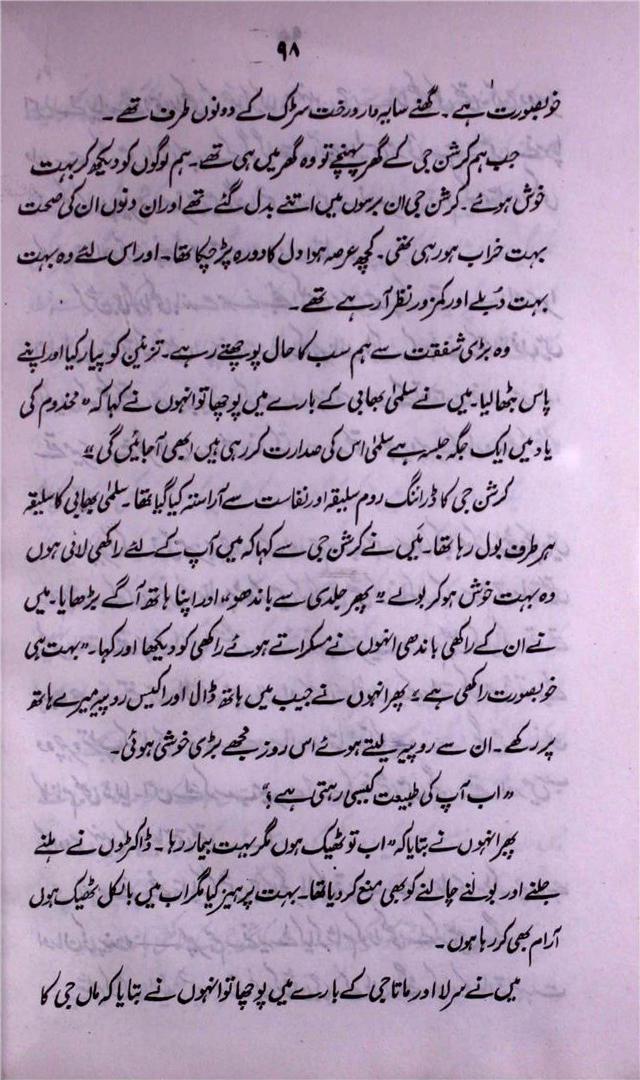 ۹۸
خوبصورت ہے۔ گھنے سایہ دار درخت سڑک کے دونوں طرف تھے۔
جب ہم کرشن جی کے گھر پہنچے تو وہ گھر میں ہی تھے۔ ہم لوگوں کو دیکھ کر بہت
خوش ہوئے۔ کرشن جی ان برسوں میں اتنے بدل گئے تھے اور ان دنوں ان کی صحت
بہت خراب ہو رہی تھی۔ کچھ عرصہ ہوا دل کا دورہ پڑ چکا تھا۔ اور اس لئے وہ بہت
بہت دُبلے اور کمزور نظر آ رہے تھے۔
وہ بڑی شفقت سے ہم سب کا حال پوچھتے رہے۔ تزئین کو پیار کیا اور اپنے
پاس بٹھا لیا۔ میں نے سلمیٰ بھابی کے بارے میں پوچھا تو انہوں نے کہا کہ "مخدوم کی
یاد میں ایک جگہ جلسہ ہے سلمیٰ اس کی صدارت کر رہی ہیں ابھی آ جائیں گی"
کرشن جی کا ڈرائنگ روم سلیقہ اور نفاست سے آراستہ کیا گیا تھا۔ سلمیٰ بھابی کا سلیقہ
ہر طرف بول رہا تھا۔ میں نے کرشن جی سے کہا کہ میں آپ کے لئے راکھی لائی ہوں
وہ بہت خوش ہو کر بولے "پھر جلدی سے باندھو" اور اپنا ہاتھ آگے بڑھایا۔ میں
نے ان کے راکھی باندھی انہوں نے مسکراتے ہوئے راکھی کو دیکھا اور کہا۔ "بہت ہی
خوبصورت راکھی ہے" پھر انہوں نے جیب میں ہاتھ ڈال اور اکیس روپیہ میرے ہاتھ
پر رکھے۔ ان سے روپیہ لیتے ہوئے اس روز مجھے بڑی خوشی ہوئی۔
"اب آپ کی طبیعت کیسی رہتی ہے؟"
پھر انہوں نے بتایا کہ "اب تو ٹھیک ہوں مگر بہت بیمار رہا۔ ڈاکٹروں نے ہلنے
جلنے اور بولنے چالنے کو بھی منع کر دیا تھا۔ بہت پرہیز کیا مگر اب میں بالکل ٹھیک ہوں
آرام بھی کر رہا ہوں۔
میں نے سرلا اور ماتا جی کے بارے میں پوچھا تو انہوں نے بتایا کہ ماں جی کا